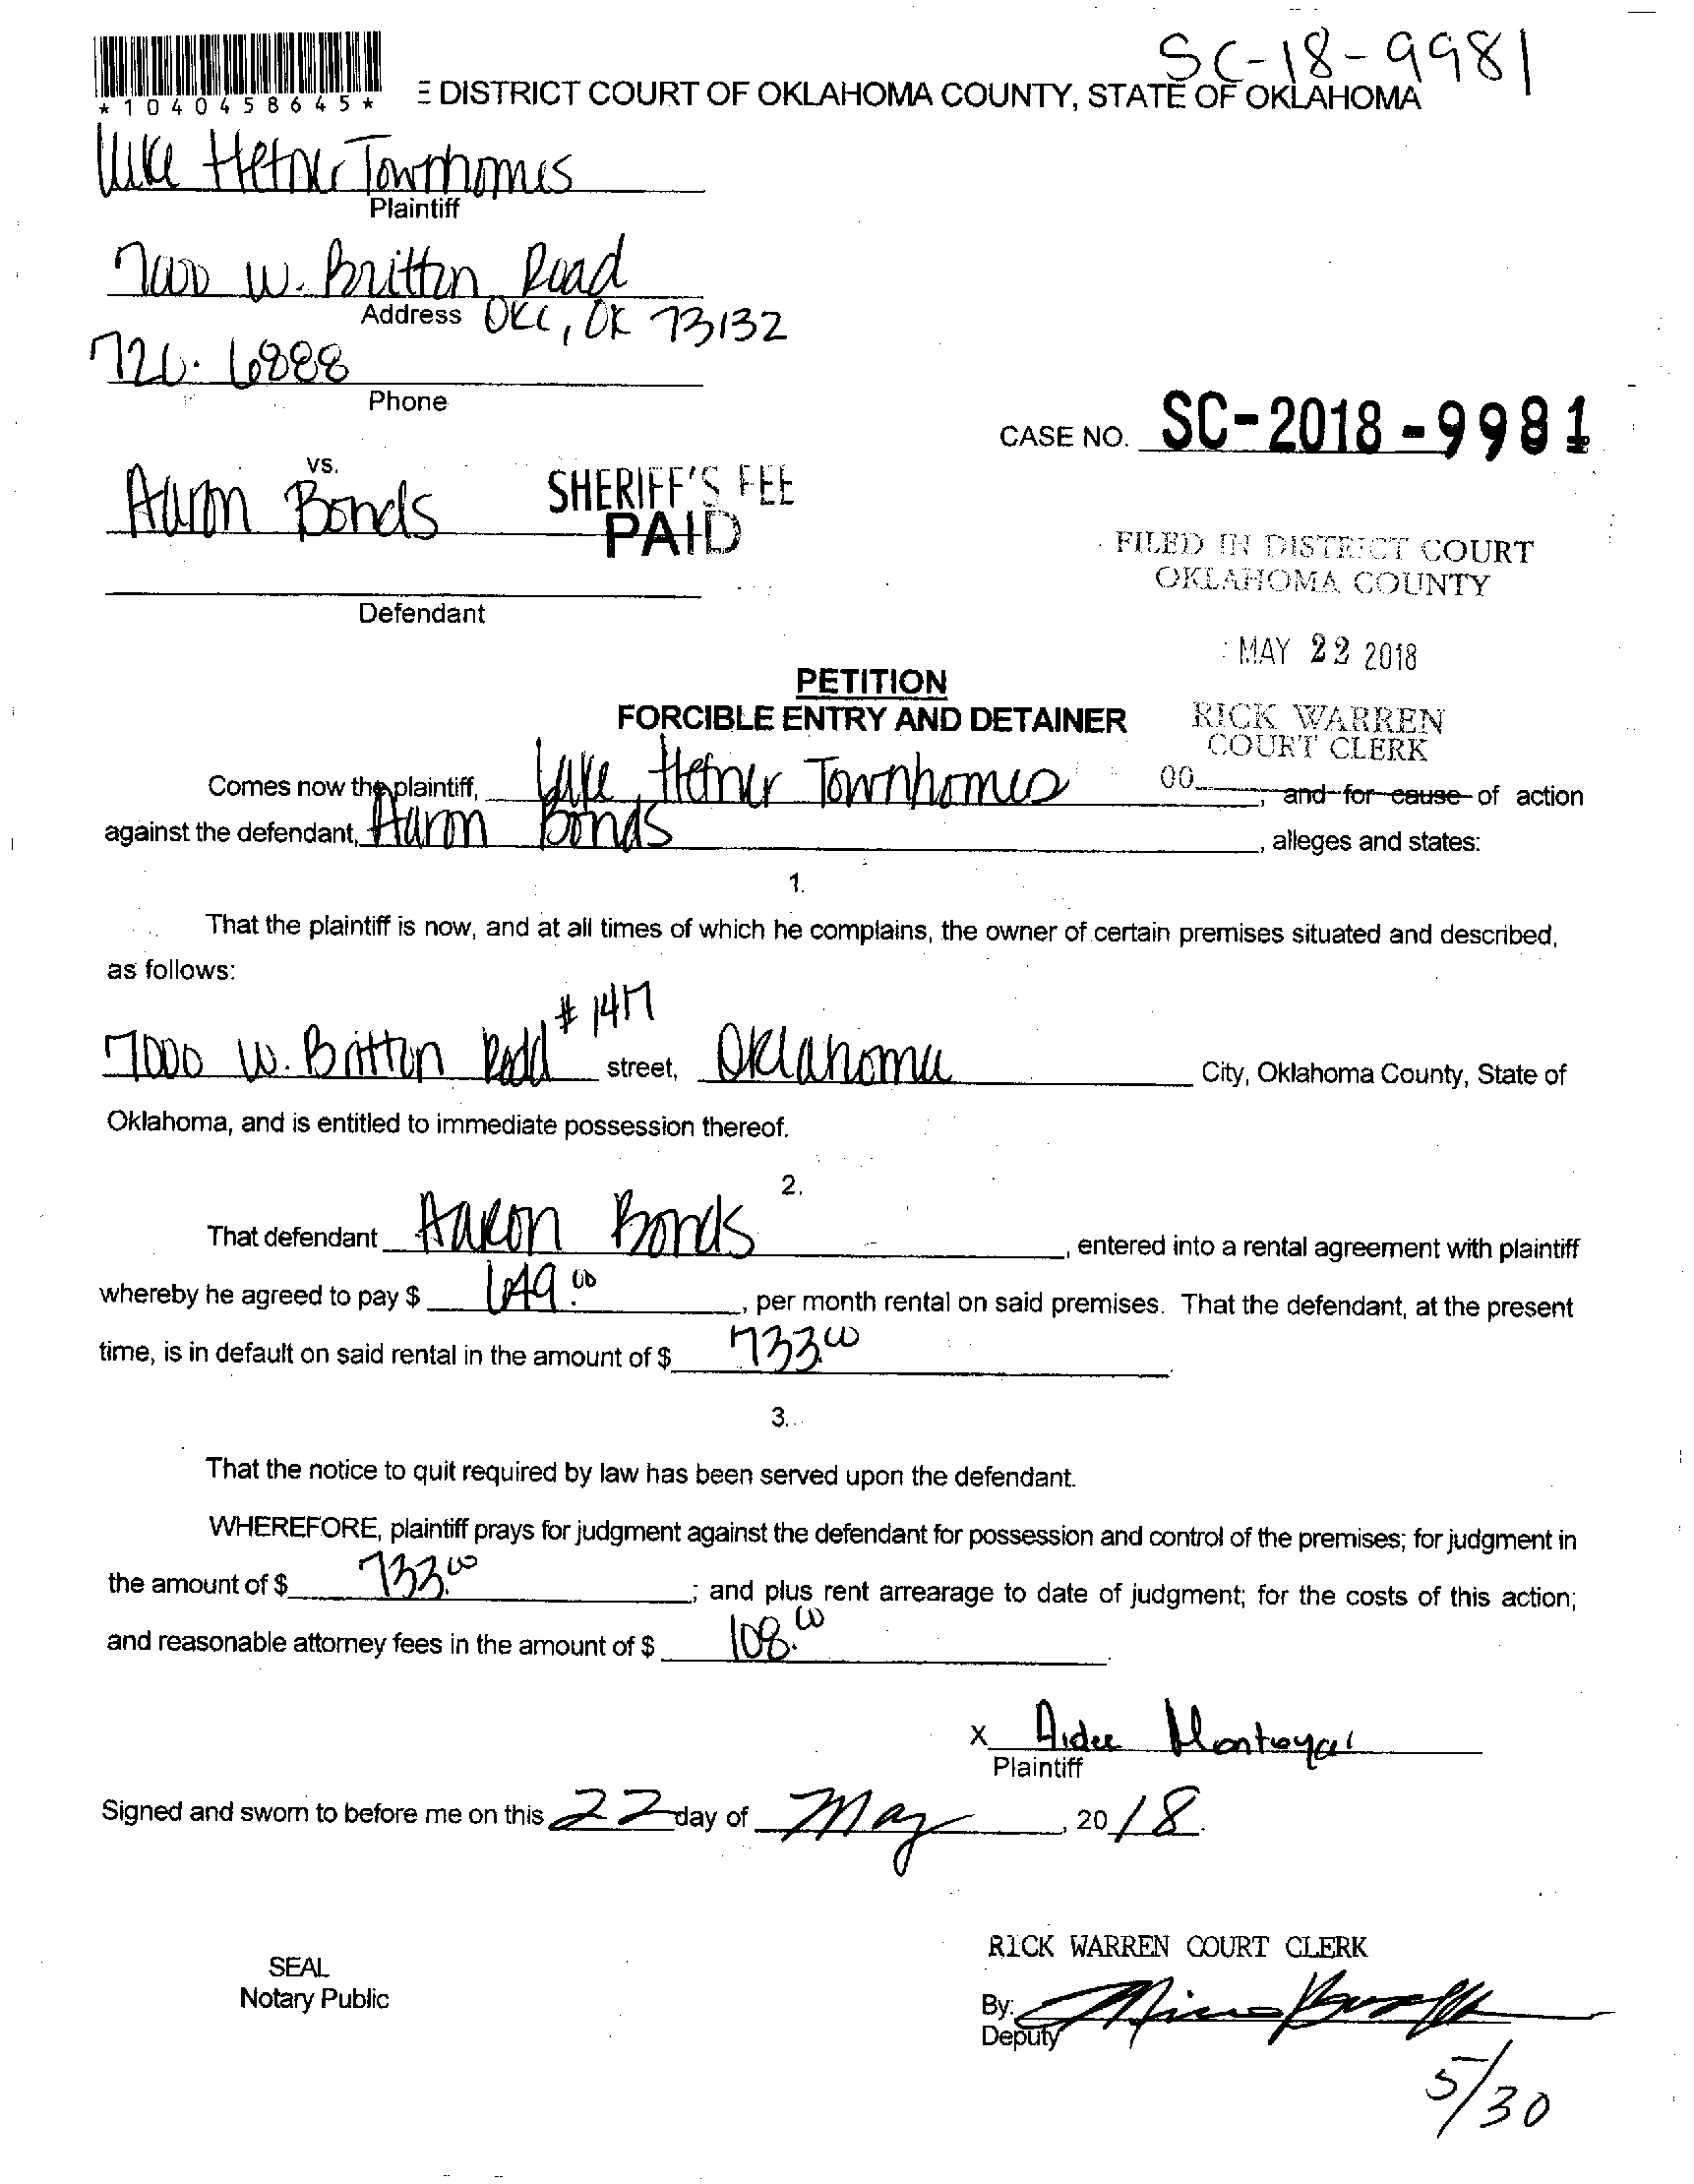 SC-18-9981
*1040458645*
E DISTRICT COURT OF OKLAHOMA COUNTY, STATE OF OKLAHOMA
Lake Hefner Townhomes
Plaintiff
7000 W. Britton Road
Address OKC, OK 73132
726-6888
Phone
CASE NO. SC-2018-9981
vs.
Aaron Bonds
SHERIFF'S FEE
PAID
FILED IN DISTRICT COURT
OKLAHOMA COUNTY
Defendant
MAY 22 2018
PETITION
FORCIBLE ENTRY AND DETAINER
RICK WARREN
COURT CLERK
Comes now the plaintiff, Lake Hefner Townhomes 00, and for cause of action
against the defendant, Aaron Bonds, alleges and states:
1.
That the plaintiff is now, and at all times of which he complains, the owner of certain premises situated and described,
as follows:
7000 W. Britton Road #1417 street, Oklahoma City, Oklahoma County, State of
Oklahoma, and is entitled to immediate possession thereof.
2.
That defendant Aaron Bonds, entered into a rental agreement with plaintiff
whereby he agreed to pay $ 649.00, per month rental on said premises. That the defendant, at the present
time, is in default on said rental in the amount of $ 733.00
3.
That the notice to quit required by law has been served upon the defendant.
WHEREFORE, plaintiff prays for judgment against the defendant for possession and control of the premises; for judgment in
the amount of $ 733.00; and plus rent arrearage to date of judgment; for the costs of this action;
and reasonable attorney fees in the amount of $ 108.00
X Aidee Montoya
Plaintiff
Signed and sworn to before me on this 22 day of May, 2018.
RICK WARREN COURT CLERK
SEAL
Notary Public
By:
Deputy
5/30